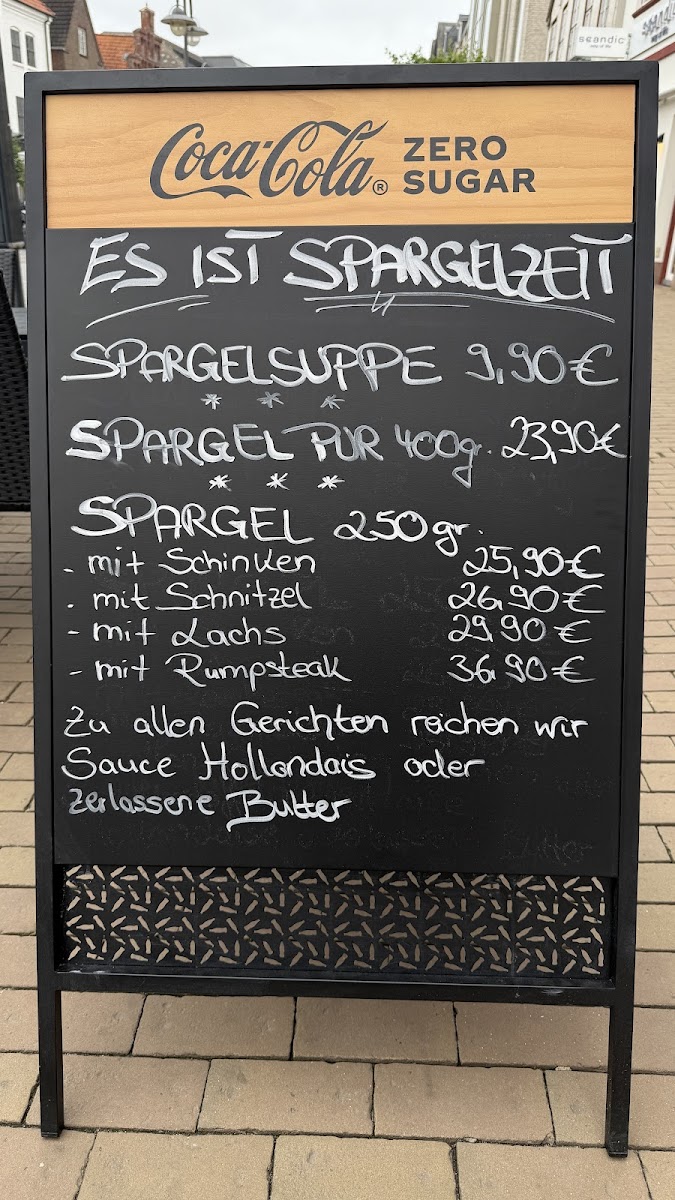 scandic
Coca-Cola® ZERO SUGAR
ES IST SPARGELZEIT
SPARGELSUPPE 9,90€
* * *
SPARGEL PUR 400g. 23,90€
* * *
SPARGEL 250gr.
- mit Schinken 25,90€
- mit Schnitzel 26,90€
- mit Lachs 29,90€
- mit Rumpsteak 36,90€
Zu allen Gerichten reichen wir
Sauce Hollondais oder
zerlassene Butter